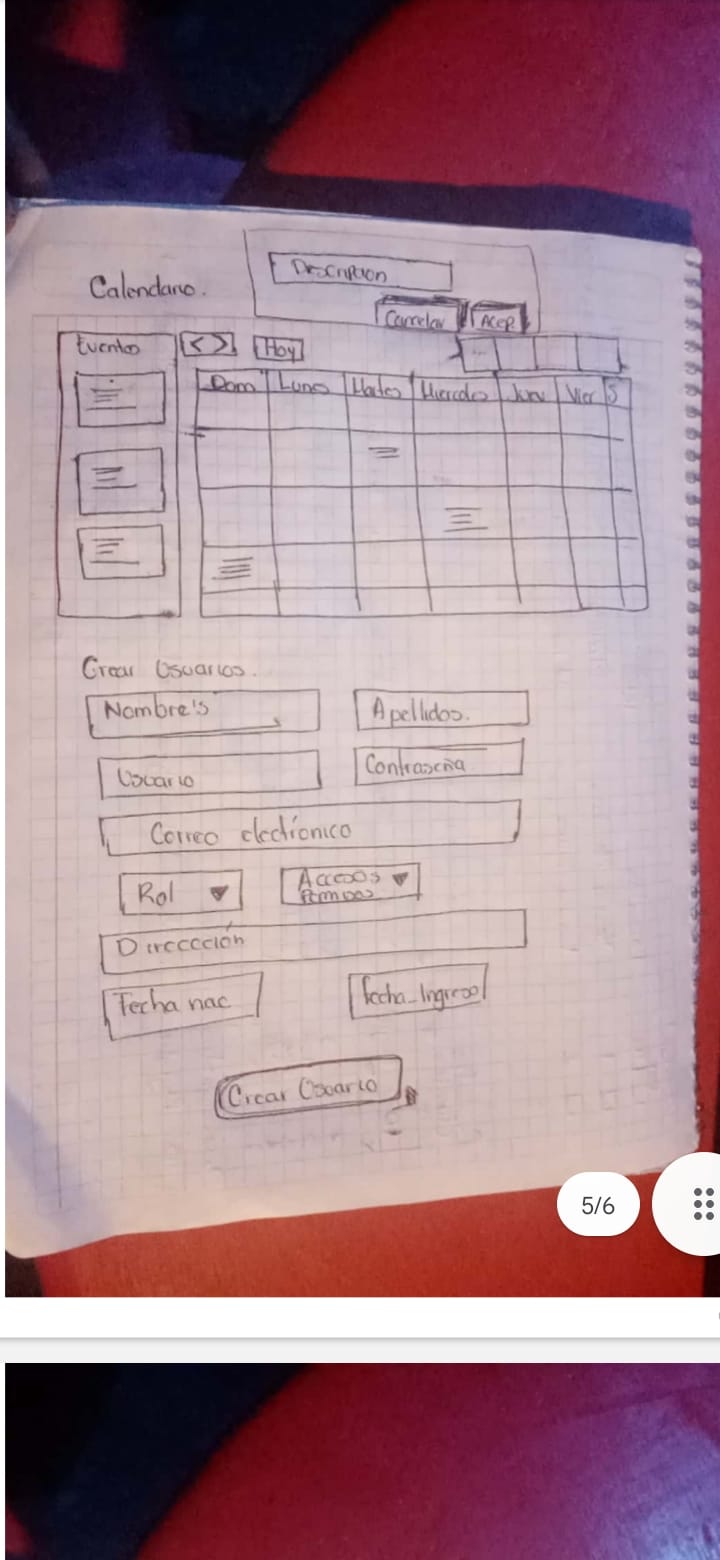 Descripcion
Calendario.
Cancelar
Acep.
Eventos
< >
Hoy
Dom Lunes Martes Miercoles Juev Vier S
Crear Usuarios.
Nombre's
Apellidos.
Usuario
Contraseña
Correo electronico
Rol
Accesos
Permisos
Direccción
Fecha nac
fecha_Ingreso
Crear Usuario
5/6